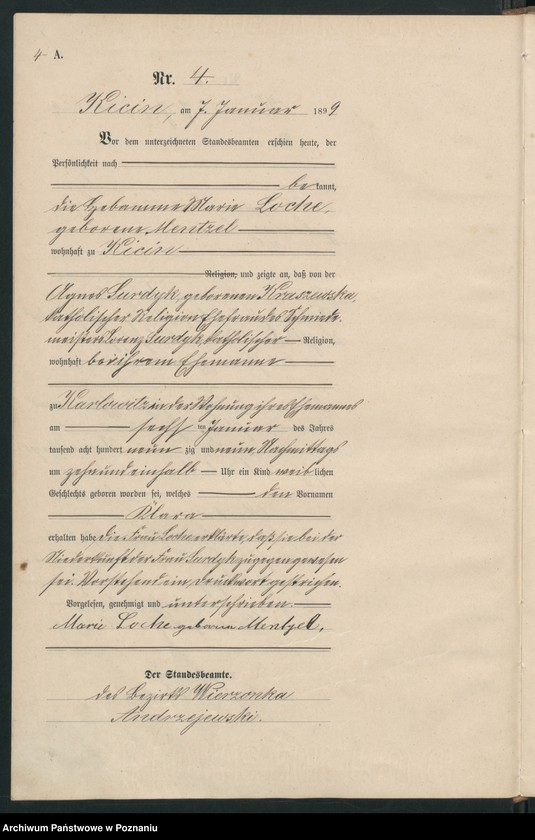 4 A.
Nr. 4.
Kicin, am 7. Januar 1899
Vor dem unterzeichneten Standesbeamten erschien heute, der
Persönlichkeit nach
be kannt,
die Hebamme Marie Loche,
geborene Mentzel
wohnhaft zu Kicin
Religion, und zeigte an, daß von der
Agnes Surdyk, geborenen Kraszewska,
katholischer Religion Ehefrau des Schmiede-
meisters Lorenz Surdyk, katholischer Religion,
wohnhaft bei ihrem Ehemanne
zu Karlowitz in der Wohnung ihres Ehemannes
am sechsten Januar des Jahres
tausend acht hundert neun zig und neun Nachmittags
um zehn und einhalb Uhr ein Kind weib lichen
Geschlechts geboren worden sei, welches den Vornamen
Klara
erhalten habe. Die Frau Loche erklärte, daß sie bei der
Niederkunft der Frau Surdyk zugegen gewesen
sei. Vorstehend ein Druckwort gestrichen.
Vorgelesen, genehmigt und unterschrieben.
Marie Loche geborene Mentzel,
Der Standesbeamte.
des Bezirks Wierzonka
Andrzejewski.
Archiwum Państwowe w Poznaniu